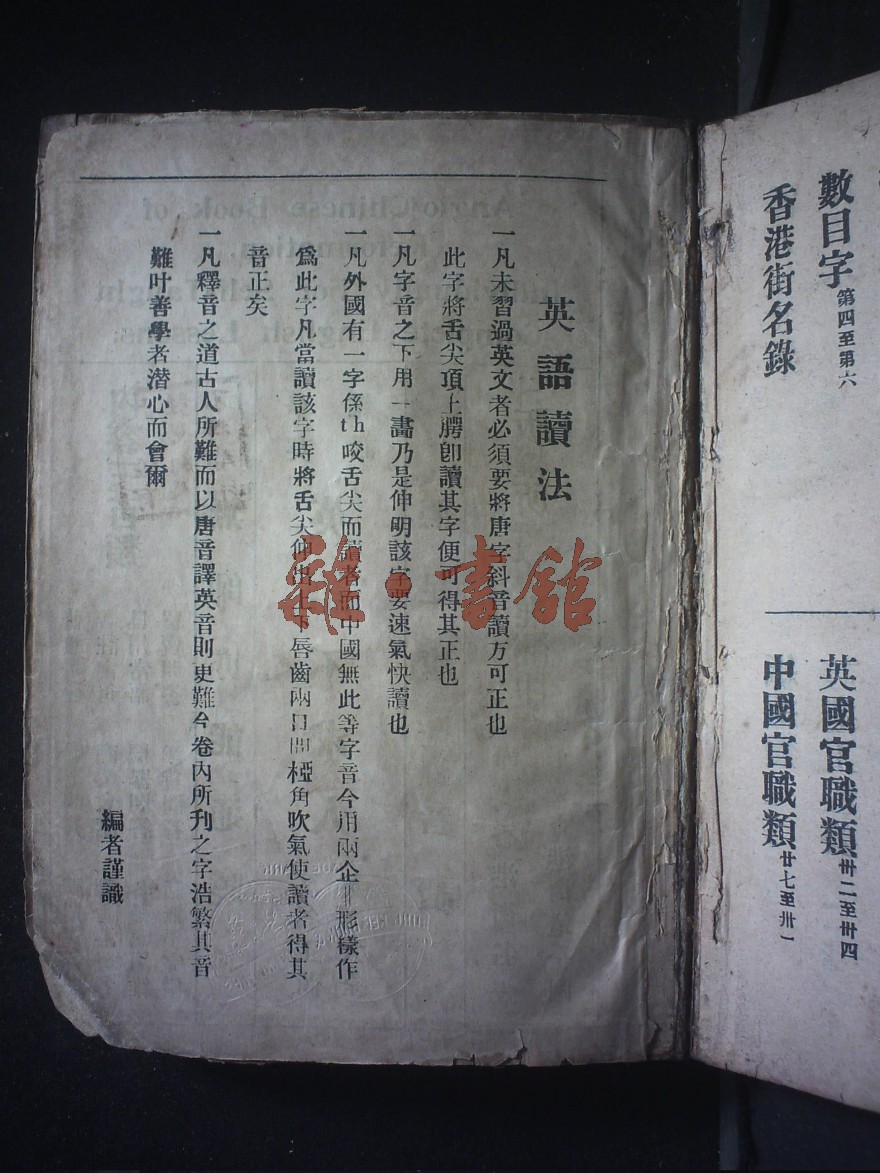 數目字 第四至第六
香港街名錄
英國官職類 卅二至卅四
中國官職類 廿七至卅一
英語讀法
一凡未習過英文者必須要將唐字斜音讀方可正也
此字將舌尖項上腭卽讀其字便可得其正也
一凡字音之下用一畫乃是伸明該字要速氣快讀也
一凡外國有一字係th咬舌尖而讀者而中國無此等字音今用兩企||形樣作
爲此字凡當讀該字時將舌尖伸出上下唇齒兩口間椏角吹氣使讀者得其
音正矣
一凡釋音之道古人所難而以唐音譯英音則更難今卷內所刋之字浩繁其音
難叶善學者潛心而會爾
編者謹識
雜·書館